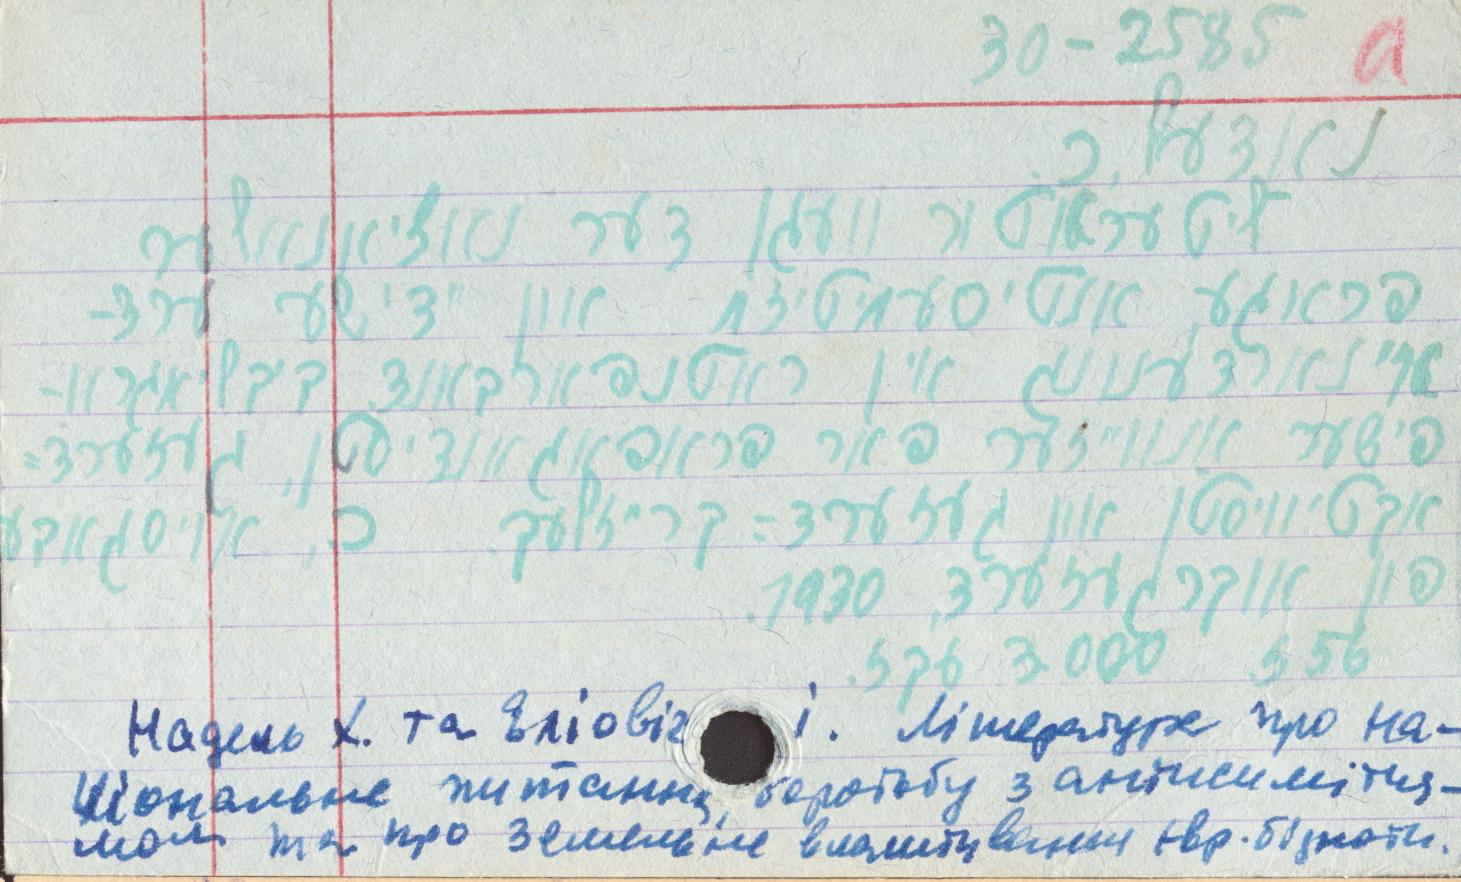 30-2585 a
נאדעל, כ.
ליטעראטור וועגן דער נאציאנאלער
פראגע, אנטיסעמיטיזם און יידישע ערד-
איינארדענונג אין ראטנפארבאנד. ביבליאגרא-
פישער אנווייזער פאר פראפאגאנדיסטן, געזערד=
אקטיוויסטן און געזערד= קרייזלעך. כ, אויסגאבע
פון אוקרגעזערד, 1930.
56 ז 3000 עקז.
Надель Х. та Еліовіч і. Література про на-
ціональне питання, боротьбу з антисемітиз-
мом та про земельне влаштування євр. бідноти.